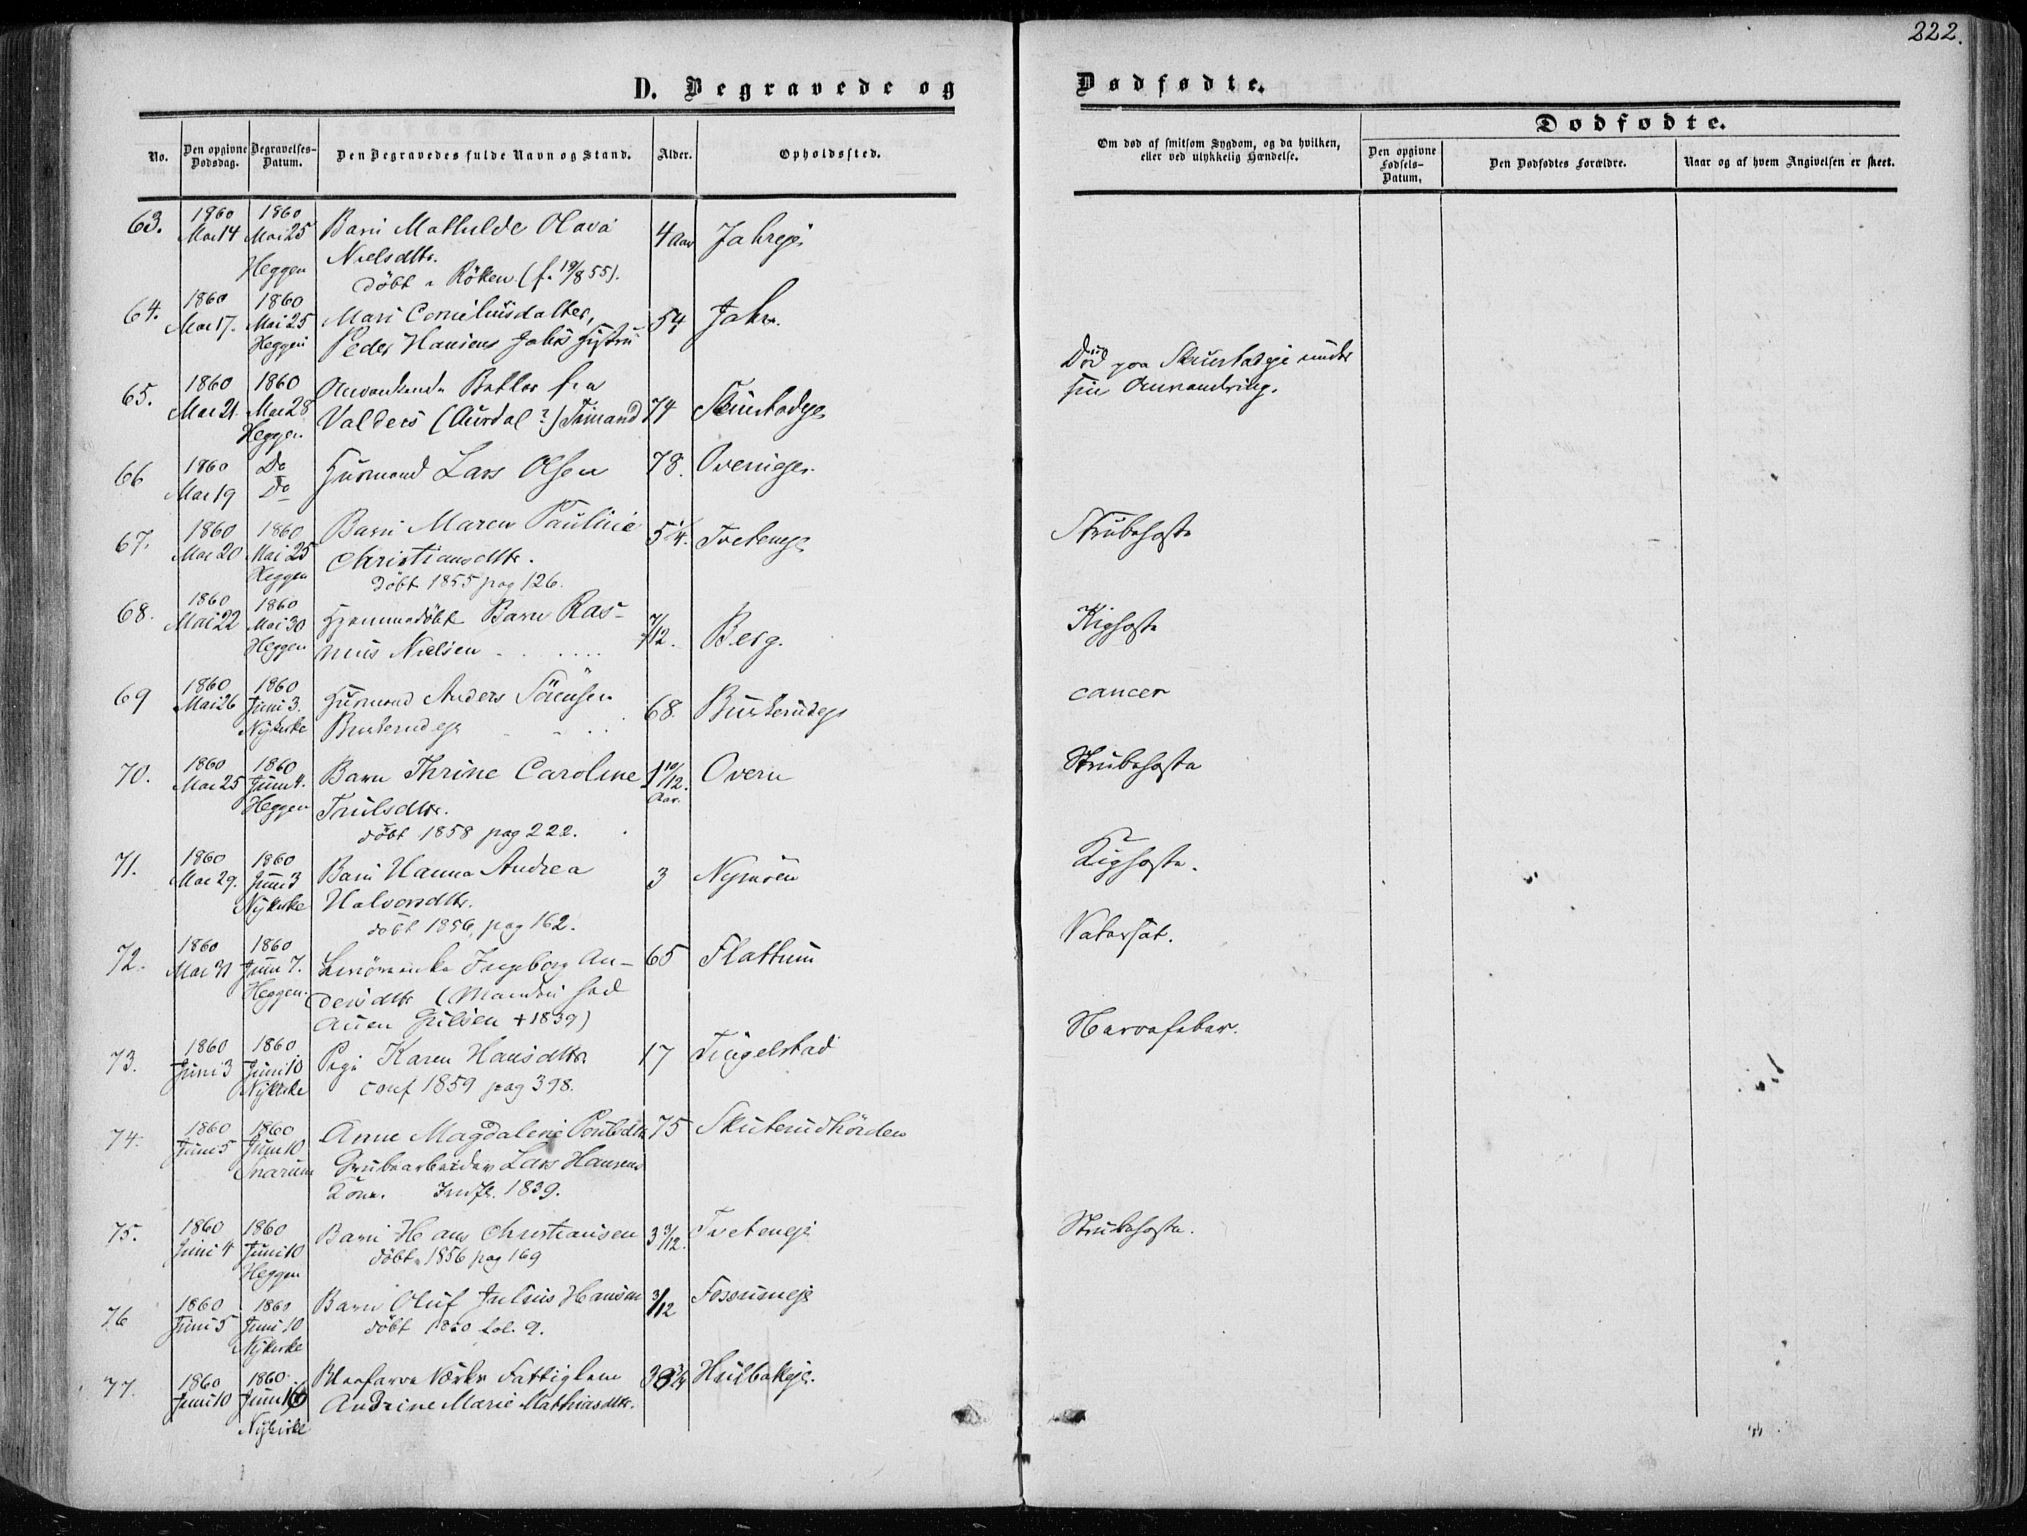 222.
D. Begravede og
Dødfødte.
No.
Den opgivne Dødsdag.
Begravelses-Datum.
Den Begravedes fulde Navn og Stand.
Alder.
Opholdssted.
Om død af smitsom Sygdom, og da hvilken, eller ved ulykkelig Hændelse.
Dødfødte.
Den opgivne Fødsels-Datum.
Den Dødfødtes Forældre.
Naar og af hvem Angivelsen er skeet.
63. 1860 Mai 14 1860 Mai 25 Barn Mathilde Olava 4 Aar Jahreje
Heggen Nielsdtr.
Döbt i Röken (f. 19/8 55).
64. 1860 Mai 17. 1860 Mai 25 Mari Corneliusdatter, 54 Jahr.
Heggen Peder Hansens Jahrs Hustru
65. 1860 Mai 21. 1860 Mai 28 Omvankende Betler fra Død paa Skurstadeje under
Heggen Valders (Aurdal?) Trinand 74 Skurstadeje sin Omvandring.
66 1860 Mai 19 Do Do Huusmand Lars Olsen 78. Overneje
67. 1860 Mai 20 1860 Mai 25 Barn Maren Pauline 5 1/4. Tveteneje Strubehoste
Heggen Christiansdtr.
Döbt 1855 pag 126.
68. 1860 Mai 22 1860 Mai 30 Hjemmedöbt Barn Ras- 7/12. Berg. Kighoste
Heggen mus Nielsen
69 1860 Mai 26 1860 Juni 3. Huusmand Anders Sörensen 68. Buskerudeje cancer
Nykirke Buskerudeje
70. 1860 Mai 25 1860 Juni 4. Barn Thrine Caroline 1 10/12. Aar. Overn Strubehoste
Heggen Trulsdtr.
döbt 1858 pag 222.
71. 1860 Mai 29. 1860 Juni 3 Barn Hanna Andrea 3 Nymoen Kighoste.
Nykirke Halvorsdtr.
döbt 1856, pag 162.
72. 1860 Mai 31 1860 Juni 7. Ingeborg An- 65 Flattum Vatersot.
Heggen. dersdtr (Manden hed
+ 1839)
73. 1860 Juni 3 1860 Juni 10 Pige Karen Hansdtr. 17 Tingelstad Nervefeber.
Nykirke conf 1859 pag 398.
74. 1860 Juni 5 1860 Juni 10 Anne Magdalene Poulsdtr 75 Skuterudhörden
Snarum Grubearbeider Lars Hansens
Kone. Indfl. 1839.
75. 1860 Juni 4 1860 Juni 10 Barn Hans Christiansen 3 3/12. Tveteneje Strubehoste.
Heggen döbt 1856 pag 169
76 1860 Juni 5 1860 Juni 10 Barn Oluf Julius Hansen 3/12 Fossumeje
Nykirke döbt 1860 fol. 9.
77. 1860 Juni 10 1860 Juni Blaafarve Værks Fattiglem 38 3/4 Hulbakeje.
Nykirke Andrine Marie Mathiasdtr.